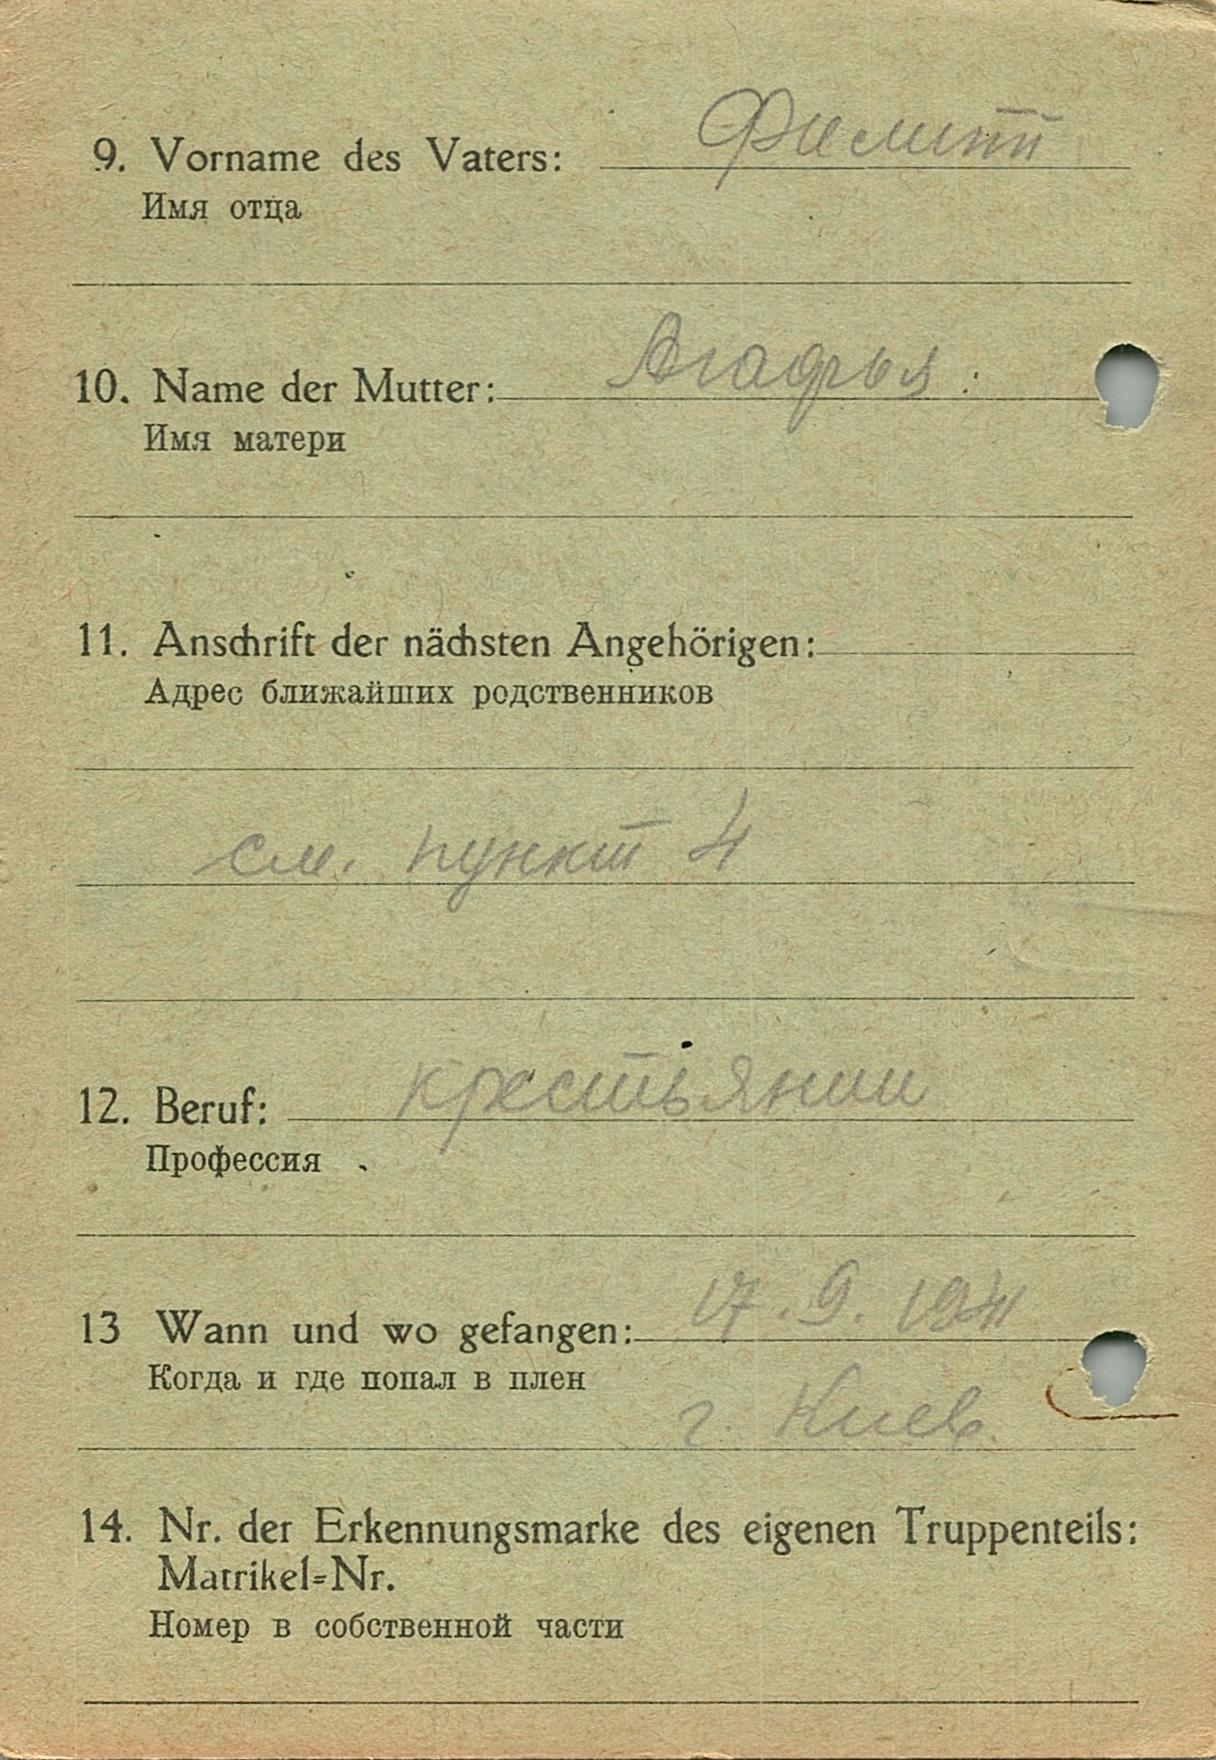 9. Vorname des Vaters: Филипп
Имя отца
10. Name der Mutter: Агафья
Имя матери
11. Anschrift der nächsten Angehörigen:
Адрес ближайших родственников
см. пункт 4
12. Beruf: крестьянин
Профессия
13 Wann und wo gefangen: 17.9.1941
Когда и где попал в плен
г. Киев
14. Nr. der Erkennungsmarke des eigenen Truppenteils:
Matrikel=Nr.
Номер в собственной части